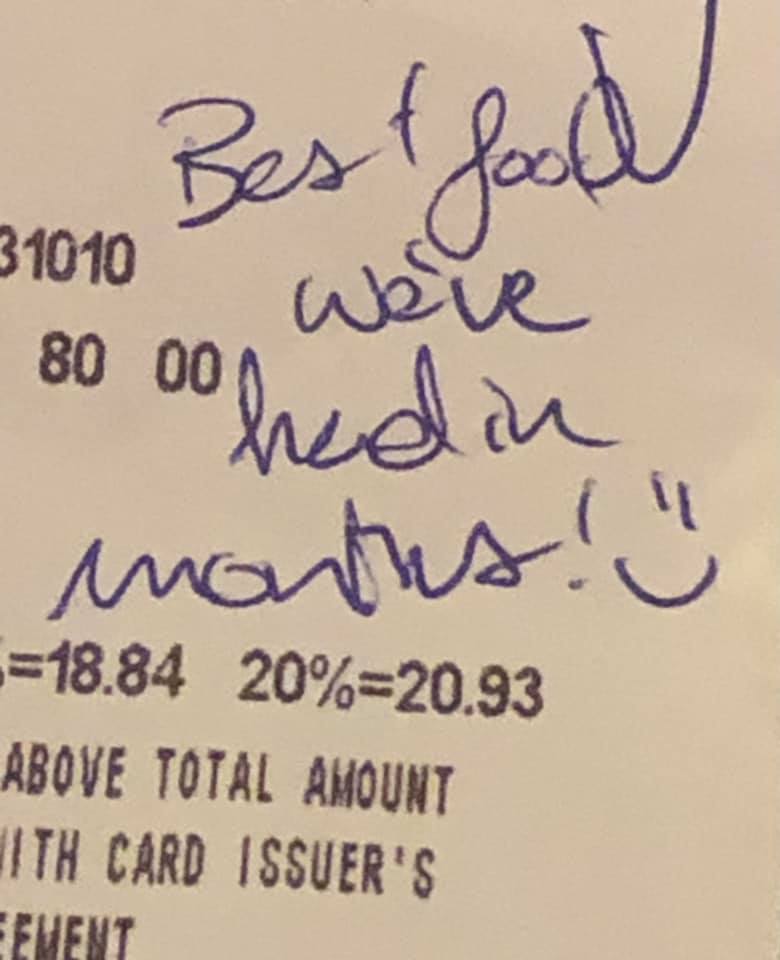 Best food
31010
we've
80 00
had in
months! :)
=18.84 20%=20.93
ABOVE TOTAL AMOUNT
WITH CARD ISSUER'S
EEMENT